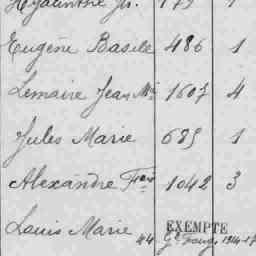 Hyacinthe Js. 179 1
Eugène Basile 486 1
Lemaire Jean Mie 1607 4
Jules Marie 685 1
Alexandre Fcois 1042 3
Louis Marie EXEMPTE
44 Gde 1914-17